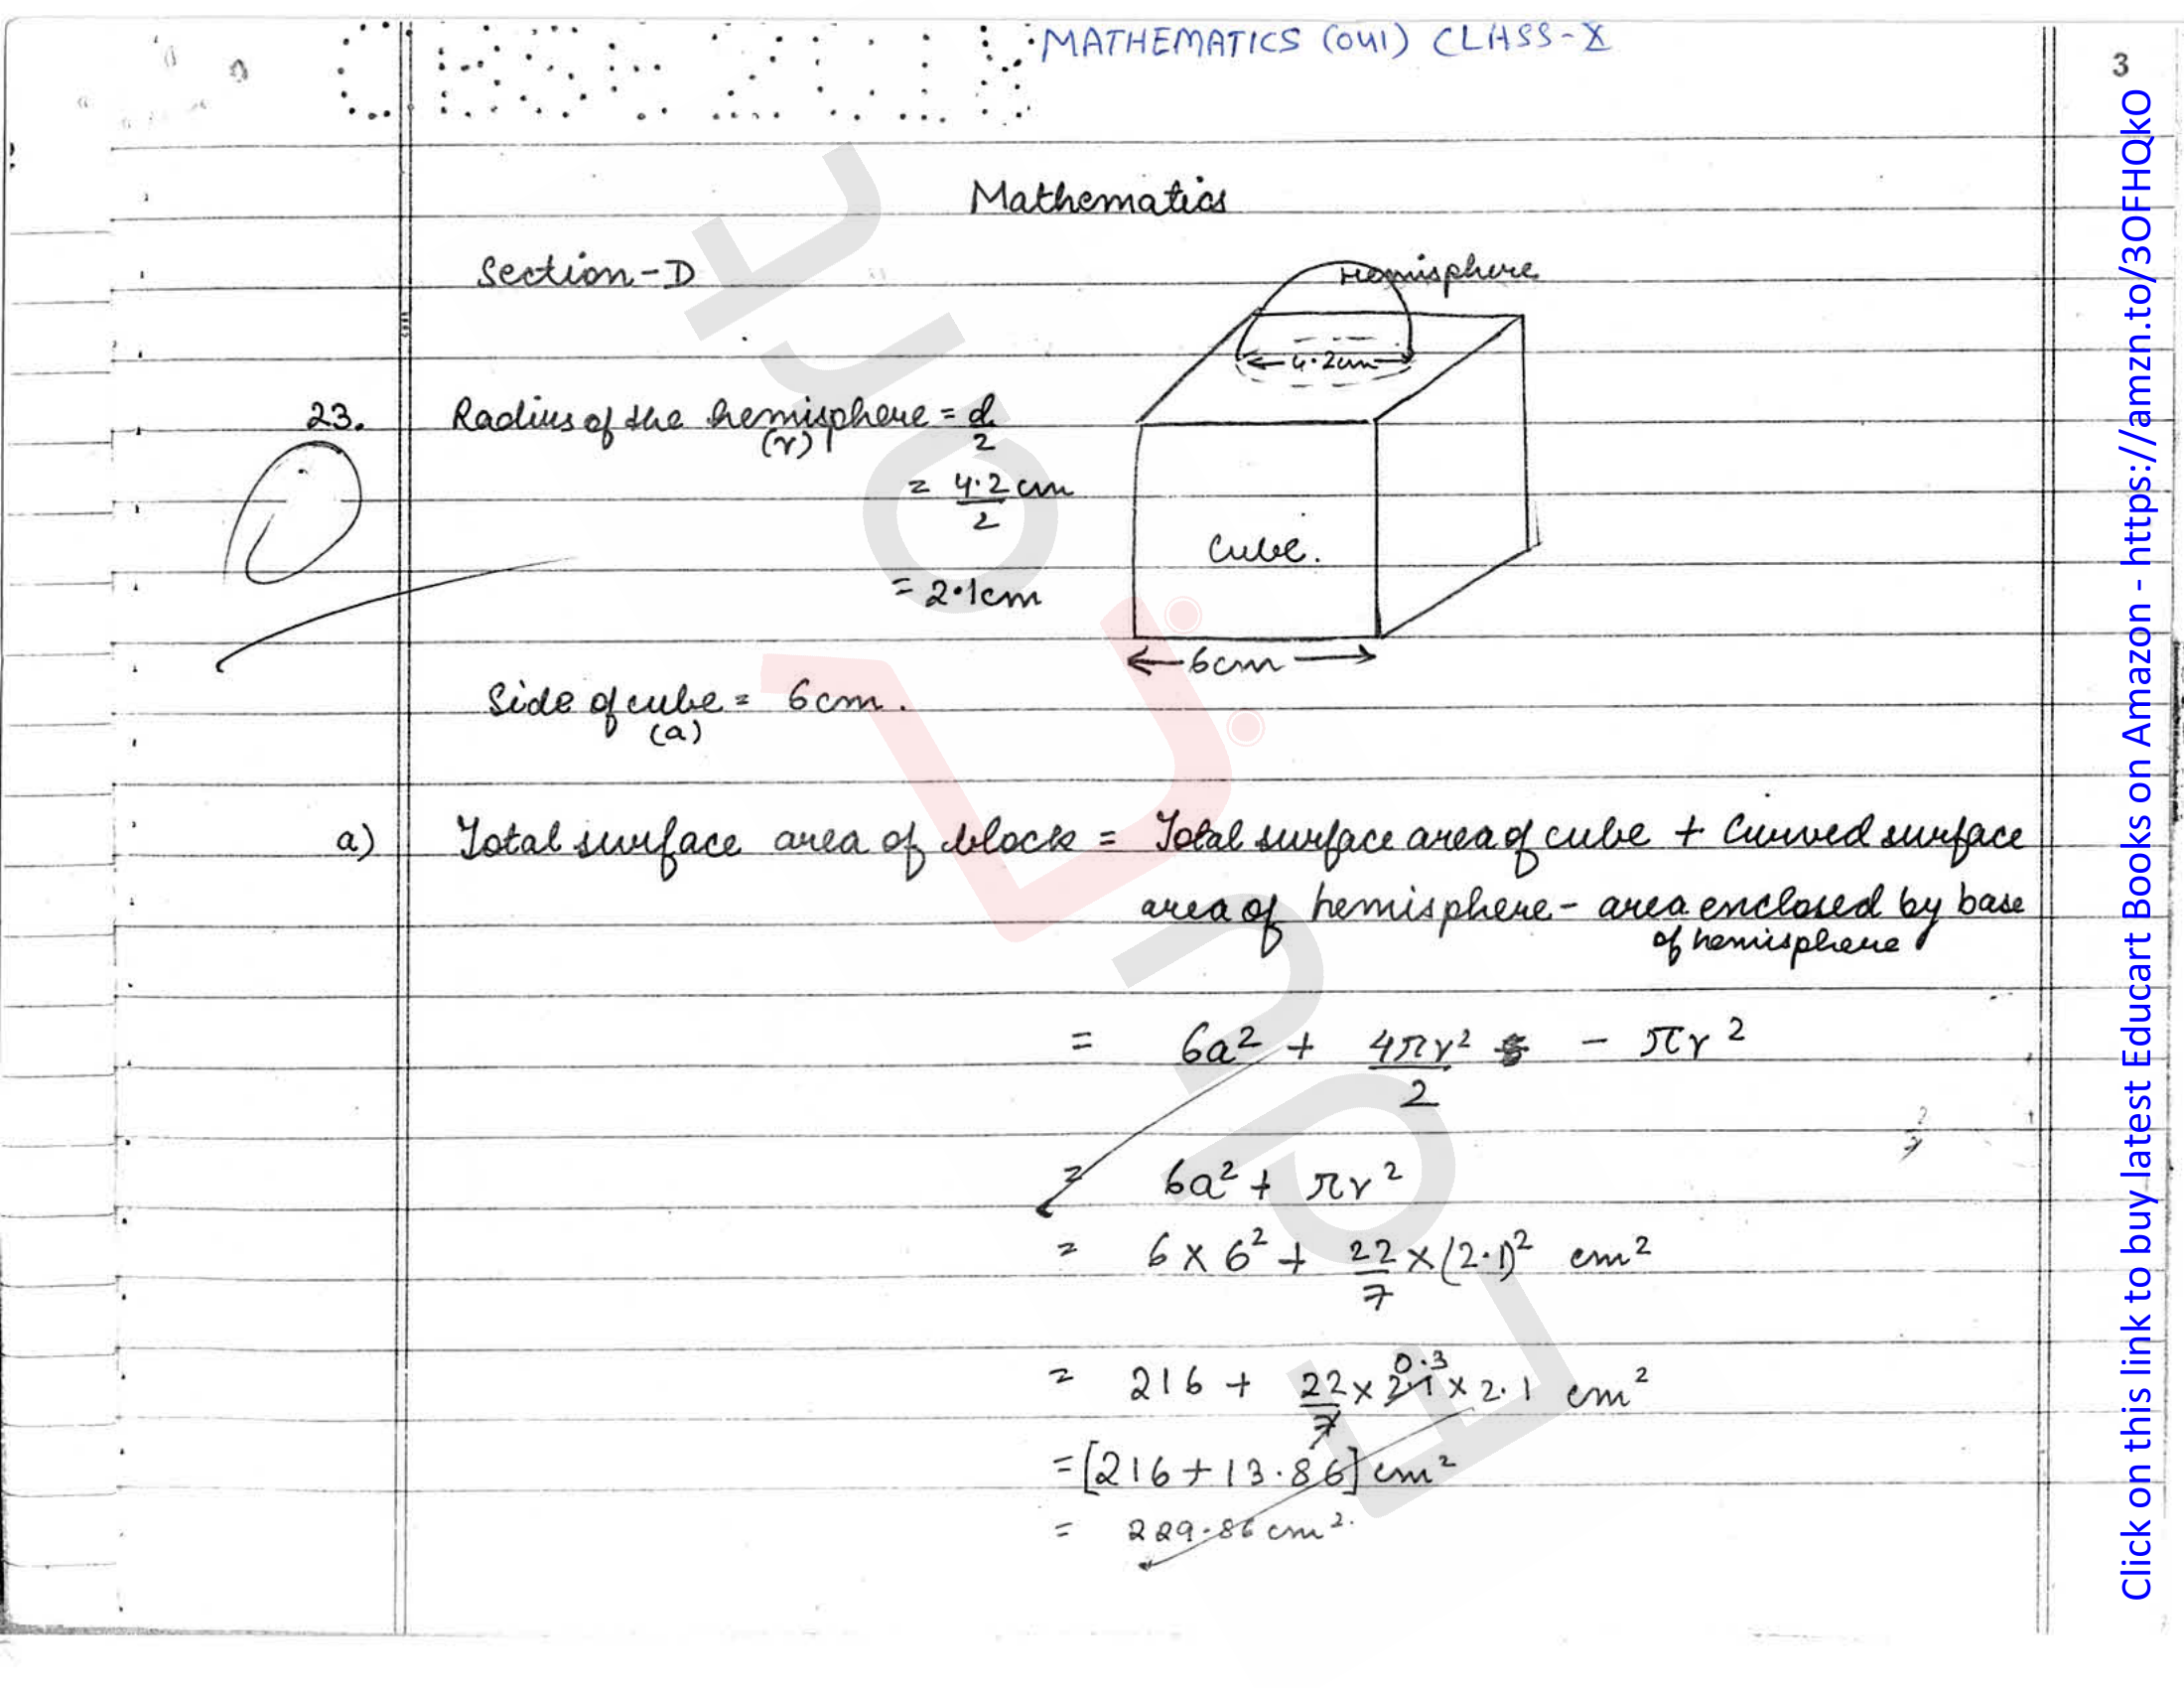 MATHEMATICS (041) CLASS-X
3
Mathematics
Section-D
Hemisphere
4.2cm
23. Radius of the hemisphere = d/2
(r)
= 4.2/2 cm
Cube.
= 2.1cm
6cm
Side of cube = 6cm.
(a)
a) Total surface area of block = Total surface area of cube + Curved surface
area of hemisphere - area enclosed by base
of hemisphere
= 6a² + 4πr²/2 - πr²
= 6a² + πr²
= 6 × 6² + 22/7 × (2.1)² cm²
0.3
= 216 + 22/7 × 2.1 × 2.1 cm²
= [216 + 13.86] cm²
= 229.86 cm².
Click on this link to buy latest Educart Books on Amazon - https://amzn.to/3OFHQkO